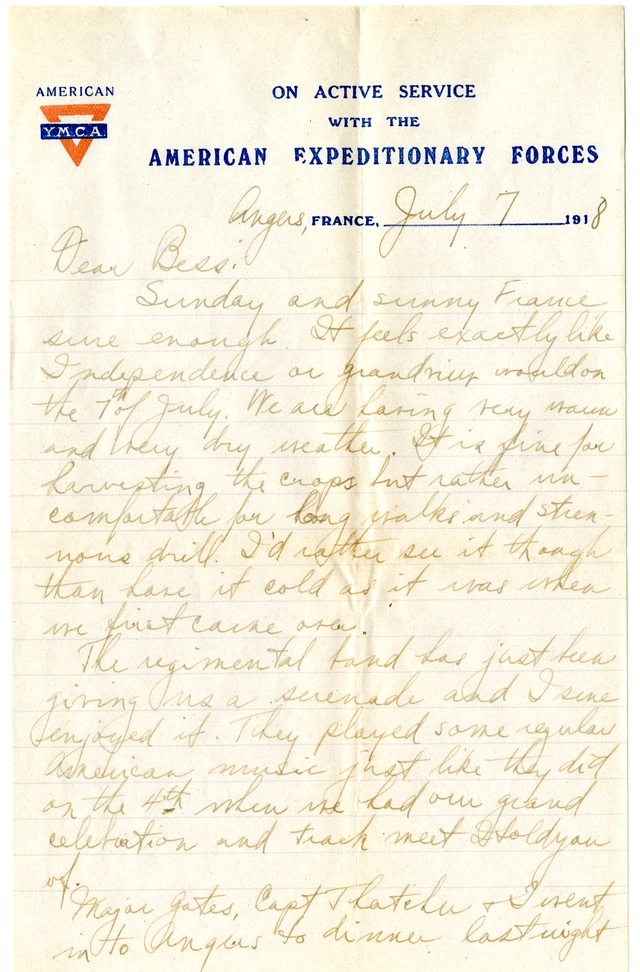 AMERICAN
YMCA
ON ACTIVE SERVICE
WITH THE
AMERICAN EXPEDITIONARY FORCES
Angers, FRANCE, July 7 1918
Dear Bess:
Sunday and sunny France
sure enough. It feels exactly like
Independence or grandview would on
the 7th of July. We are having very warm
and very dry weather. It is fine for
harvesting the crops but rather un-
comfortable for long walks and stren-
uous drill. I'd rather see it though
than have it cold as it was when
we first came over.
The regimental band has just been
giving us a serenade and I sure
enjoyed it. They played some regular
American music just like they did
on the 4th when we had our grand
celebration and track meet I told you
of.
Major Gates, Capt Thatcher & I went
in to Angers to dinner last night